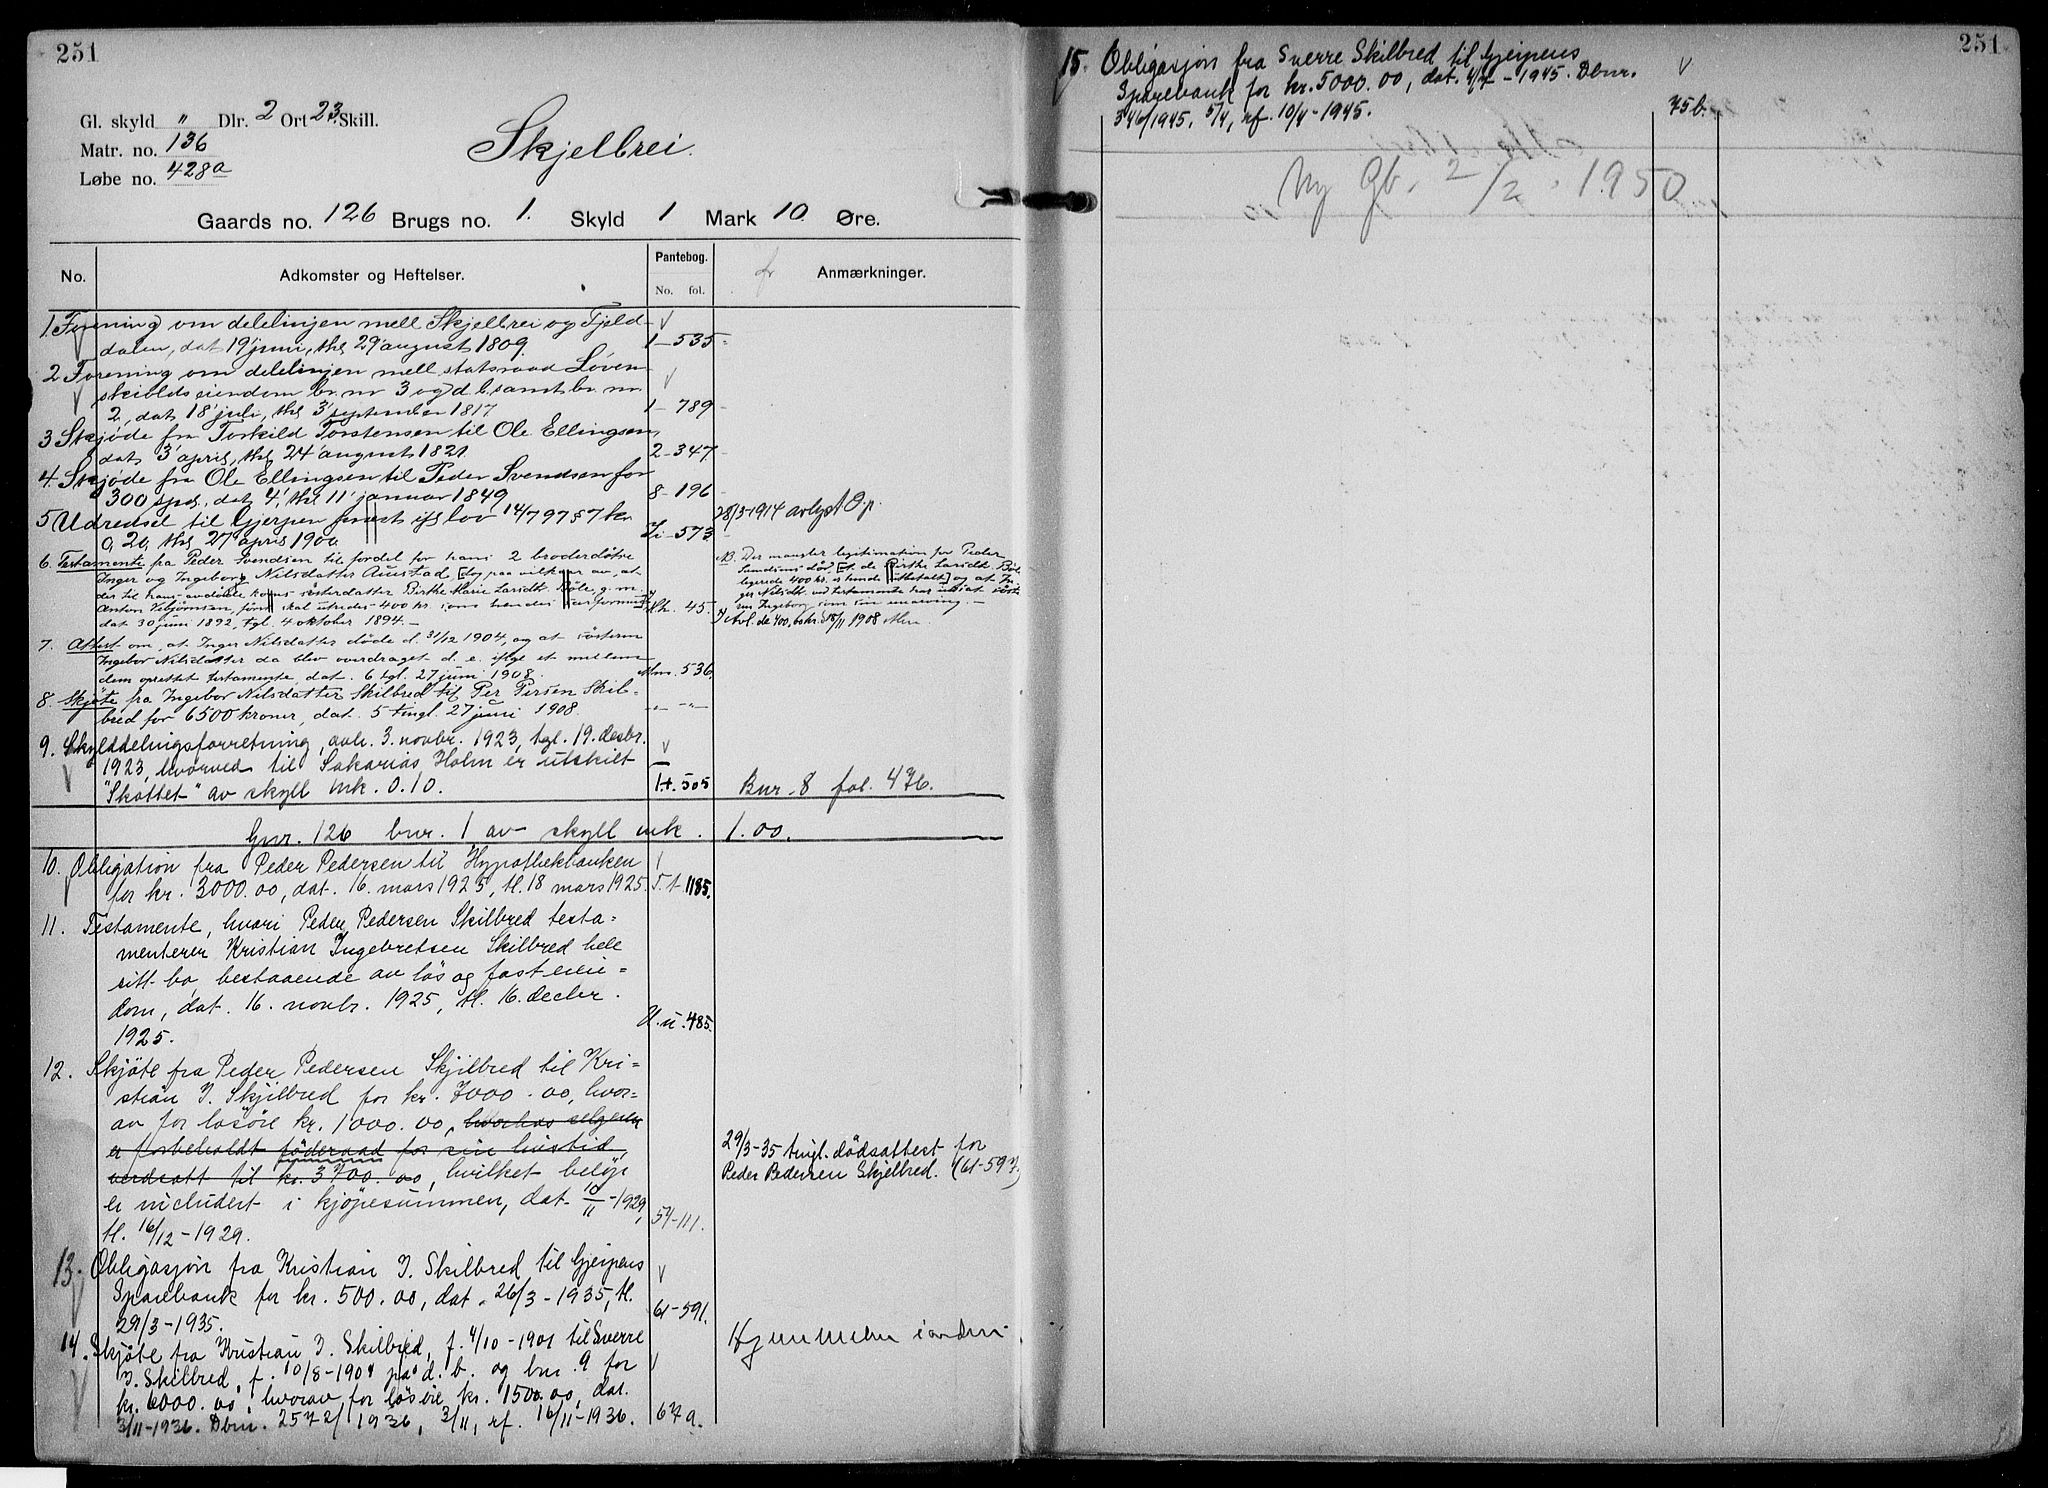 251
Gl. skyld " Dlr. 2 Ort 23 Skill.
Matr. no. 136
Løbe no. 428a
Skjelbrei.
Gaards no. 126 Brugs no. 1. Skyld 1 Mark 10 Øre.
No. Adkomster og Heftelser. Pantebog. No. fol. Anmærkninger.
1. Forening om delelinjen mell Skjelbrei og Fjeld-
dalen, dat 19' juni, thl 29' august 1809. 1-535
2 Forening om delelinjen mell statsraad Løven-
skiolds eiendom br. nr 3 og d. b. samt br. nr
2, dat 18' juli, thl 3' september 1817. 1-789
3 Skjøde fra Torkild Torstensen til Ole Ellingsen,
dat 3' april, thl 24' august 1821. 2-347
4. Skjøde fra Ole Ellingsen til Peder Svendsen for
300 spd., dat 4', thl 11' januar 1849 8-196
5 Udredsel til Gjerpen ifl lov 14/7 97 § 7 kr 28/3-1914 avlyst
0,20, thl 27 april 1900 573
6. Testamente fra Peder Svendsen til fordel for hans 2 broderdøtre
Inger og Ingeborg Nilsdatter Aunstad [dog paa vilkaar av, at
der til hans avdøde kones søsterdatter Birthe Marie Larsdt. Bøle, g. m.
Anton Isbjørnsen, skal utredes 400 kr. som hendes
dat 30 juni 1892, tgl. 4 oktober 1894.- 45.
NB. Der mangler legitimation for Peder
Svendsens død, [at de Birthe Larsdt. Bøle
legerede 400 kr. er hende utbetalt] og at In-
ger Nilsdt. ved testamente har indsat søste-
ren Ingeborg som sin enearving.-
Avl. de 400, bskr. 18/11 1908
7. Attest om, at Inger Nilsdatter døde d. 31/12 1904, og at søsteren
Ingebor Nilsdatter da blev overdraget d. e. ifølge et mellem
dem oprettet testamente, dat. 6 tgl. 27 juni 1908. Mm. 536
8. Skjøte fra Ingebor Nilsdatter Skilbred til Per Persen Skil-
bred for 6500 kroner, dat. 5 tingl. 27 juni 1908. -"- -"-
9. Skylddelingsforretning, avh. 3. novbr. 1923, tgl. 19. desbr.
1923, hvorved til Sakarias Holm er utskilt
"Skottet" av skyll mk. 0.10. 505 Bnr. 8 fol. 476.
Gnr. 126 bnr. 1 av skyll mk. 1.00.
10. Obligation fra Peder Pedersen til Hypothekbanken
for kr. 3000.00, dat. 16. mars 1925, tl. 18 mars 1925. 1185.
11. Testamente, hvori Peder Pedersen Skilbred testa=
menterer Kristian Ingebretsen Skilbred hele
sitt bo, bestaaende av løs og fast eien=
dom, dat. 16. novbr. 1925, tl. 16. decbr.
1925. U.u. 485.
12. Skjøte fra Peder Pedersen Skjilbred til Kri=
stian I. Skjilbred for kr. 7000.00, hvor=
av for løsøre kr. 1000.00, hvorhos selgeren
er forbeholdt føderaad for sin livstid,
verdsatt til kr. 3700.00, hvilket beløp
er includert i kjøpesummen, dat. 10/11-1929,
tl. 16/12-1929. 57-111.
29/3-35 tingl. dødsattest for
Peder Pedersen Skjelbred. (61-597)
13. Obligasjon fra Kristian I. Skilbred til Gjerpens
Sparebank for kr. 500.00, dat. 26/3-1935, tl.
29/3-1935. 61-591.
14. Skjøte fra Kristian I. Skilbred, f. 4/10-1901 til Sverre
I. Skilbred, f. 10/8-1904 på d. b. og bnr. 9 for
kr. 6000.00, hvorav for løsøre kr. 1500.00, dat.
3/11-1936. Dbnr. 2572/1936, 3/11, rf. 16/11-1936. 67 a.
Hjemmelen i orden
251
15. Obligasjon fra Sverre Skilbred til Gjerpens
Sparebank for kr. 5000.00, dat. 4/4-1945. Dbnr.
346/1945, 5/4, rf. 10/4-1945. 75b.
Ny Gb. 2/2 . 1950